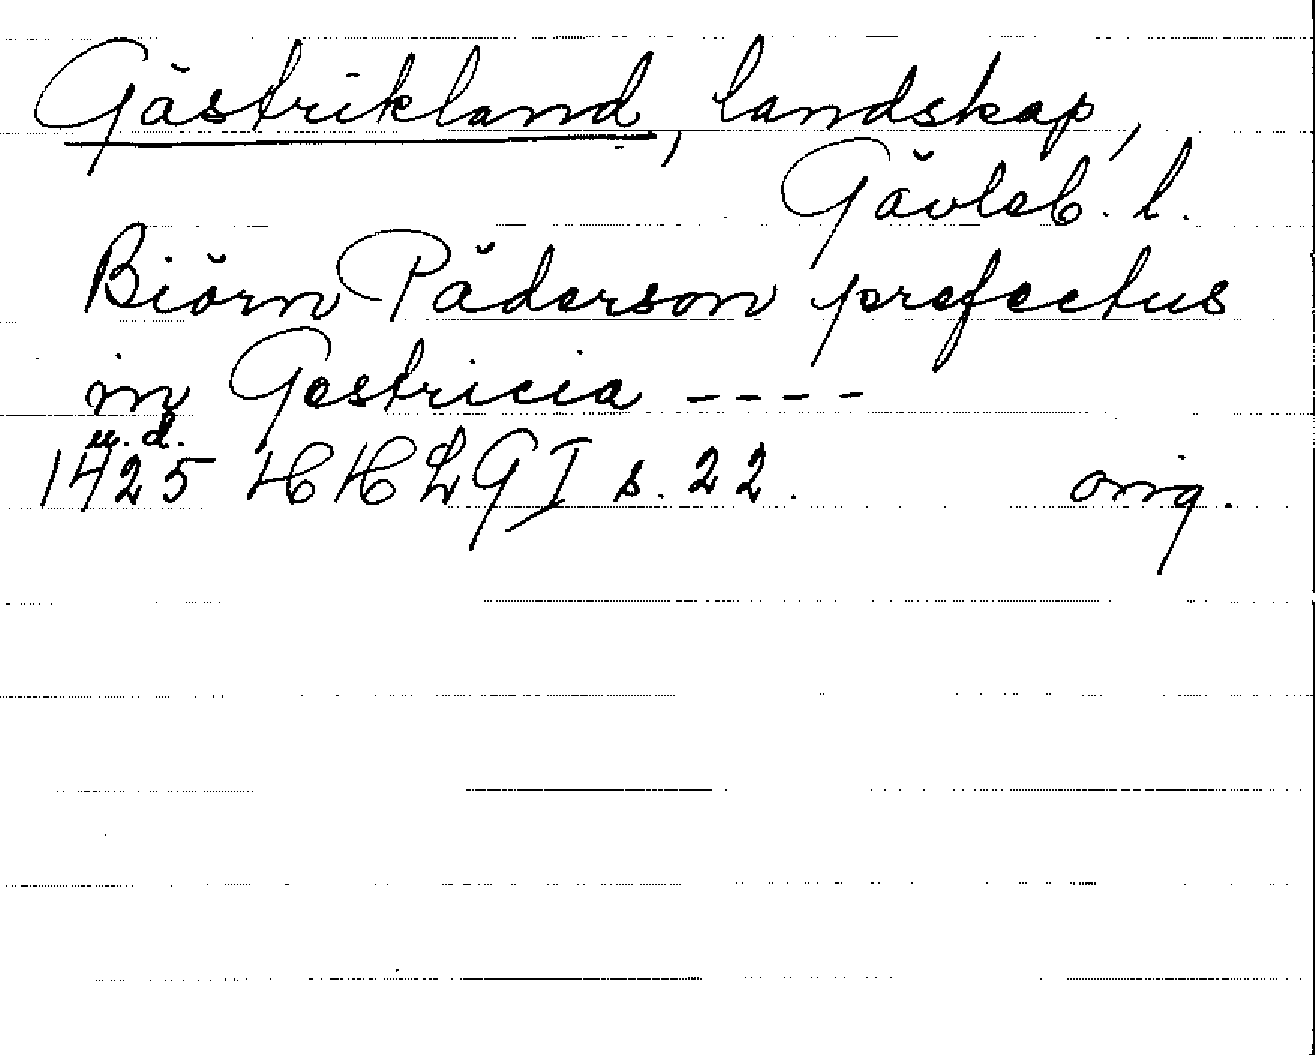 Gästrikland, landskap,
Gävleb. l.
Biörn Päderson prefectus
in Gestricia ----
u. d.
1425 HHLG I s. 22. orig.